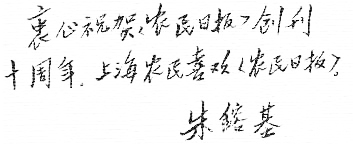 衷心祝贺《农民日报》创刊
十周年,上海农民喜欢《农民日报》。
朱镕基